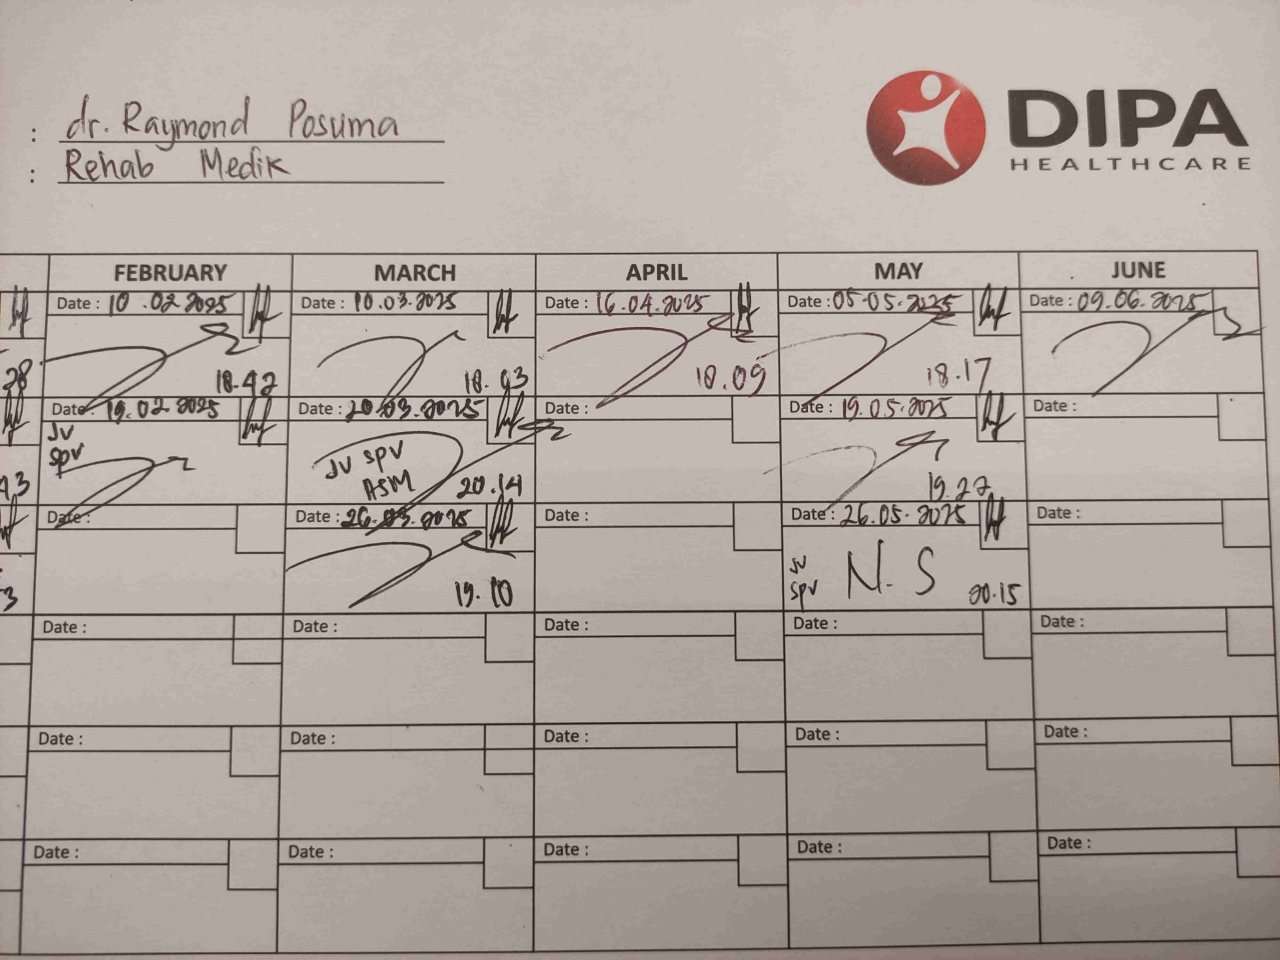 : dr. Raymond Posuma
: Rehab Medik
DIPA
HEALTHCARE
FEBRUARY MARCH APRIL MAY JUNE
Date : 10.02.2025 Date : 10.03.2025 Date : 16.04.2025 Date : 05.05.2025 Date : 09.06.2025
28 18.42 18.03 18.09 18.17
Date : 19.02.2025 Date : 20.03.2025 Date : Date : 19.05.2025 Date :
JV
SPV
JV SPV
ASM 20.14 19.22
Date : Date : 26.03.2025 Date : Date : 26.05.2025 Date :
19.10 JV
SPV N.S 20.15
Date : Date : Date : Date : Date :
Date : Date : Date : Date : Date :
Date : Date : Date : Date : Date :